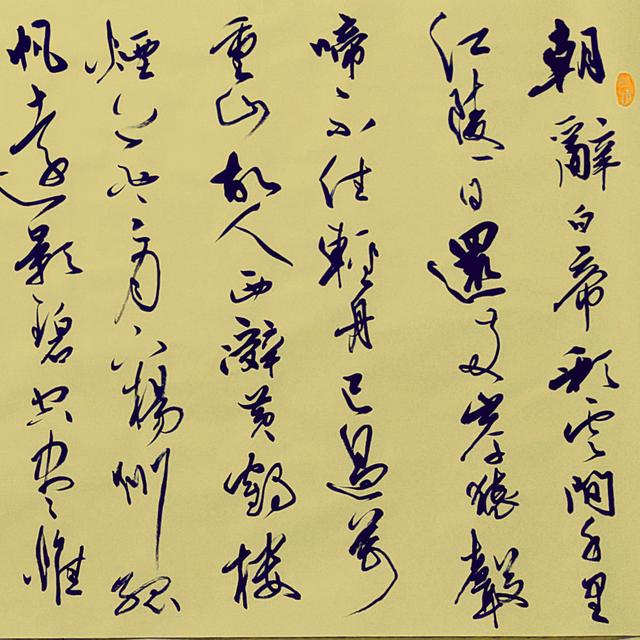 朝辭白帝彩雲間千里
江陵一日還兩岸猿聲
啼不住輕舟已過萬
重山故人西辭黃鶴樓
煙花三月下楊州孤
帆遠影碧空盡惟